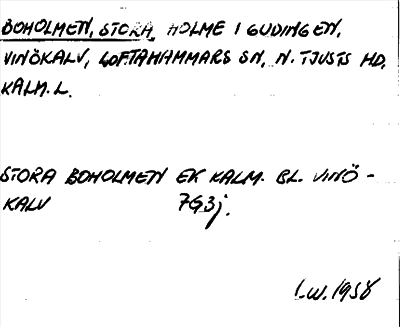 BOHOLMEN, STORA, HOLME I GUDINGEN,
VINÖKALV, LOFTAHAMMARS SN, N. TJUSTS HD,
KALM. L.
STORA BOHOLMEN EK KALM. BL. VINÖ-
KALV 7G3j.
I.W. 1958